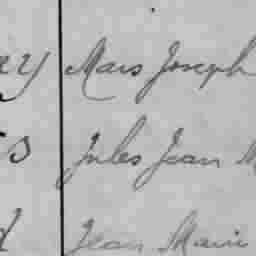 ay Mars Joseph
s Jules Jean M
d Jean Marie